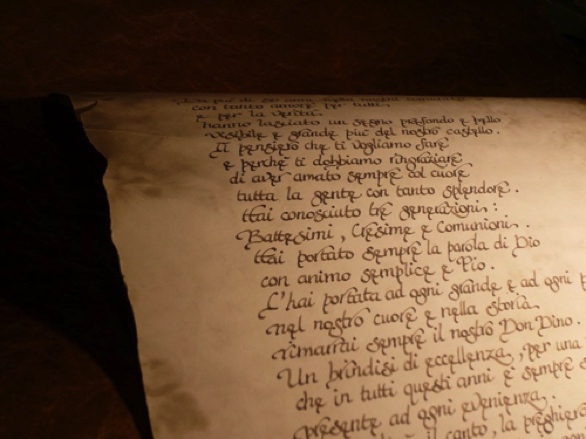 con tanto amore per tutti,
e per la verità.
hanno lasciato un segno profondo e bello
visibile e grande più del nostro castello.
Il pensiero che ti vogliamo fare
e perchè ti dobbiamo ringraziare
di aver amato sempre col cuore
tutta la gente con tanto splendore.
Hai conosciuto tre generazioni:
Battesimi, Cresime e Comunioni.
Hai portato sempre la parola di Dio
con animo semplice e Pio.
L'hai portata ad ogni grande e ad ogni p
nel nostro cuore e nella storia
rimarrai sempre il nostro Don Dino.
Un brindisi di eccellenza, per una
che in tutti questi anni è sempre s
presente ad ogni evenienza.
il canto, la preghier